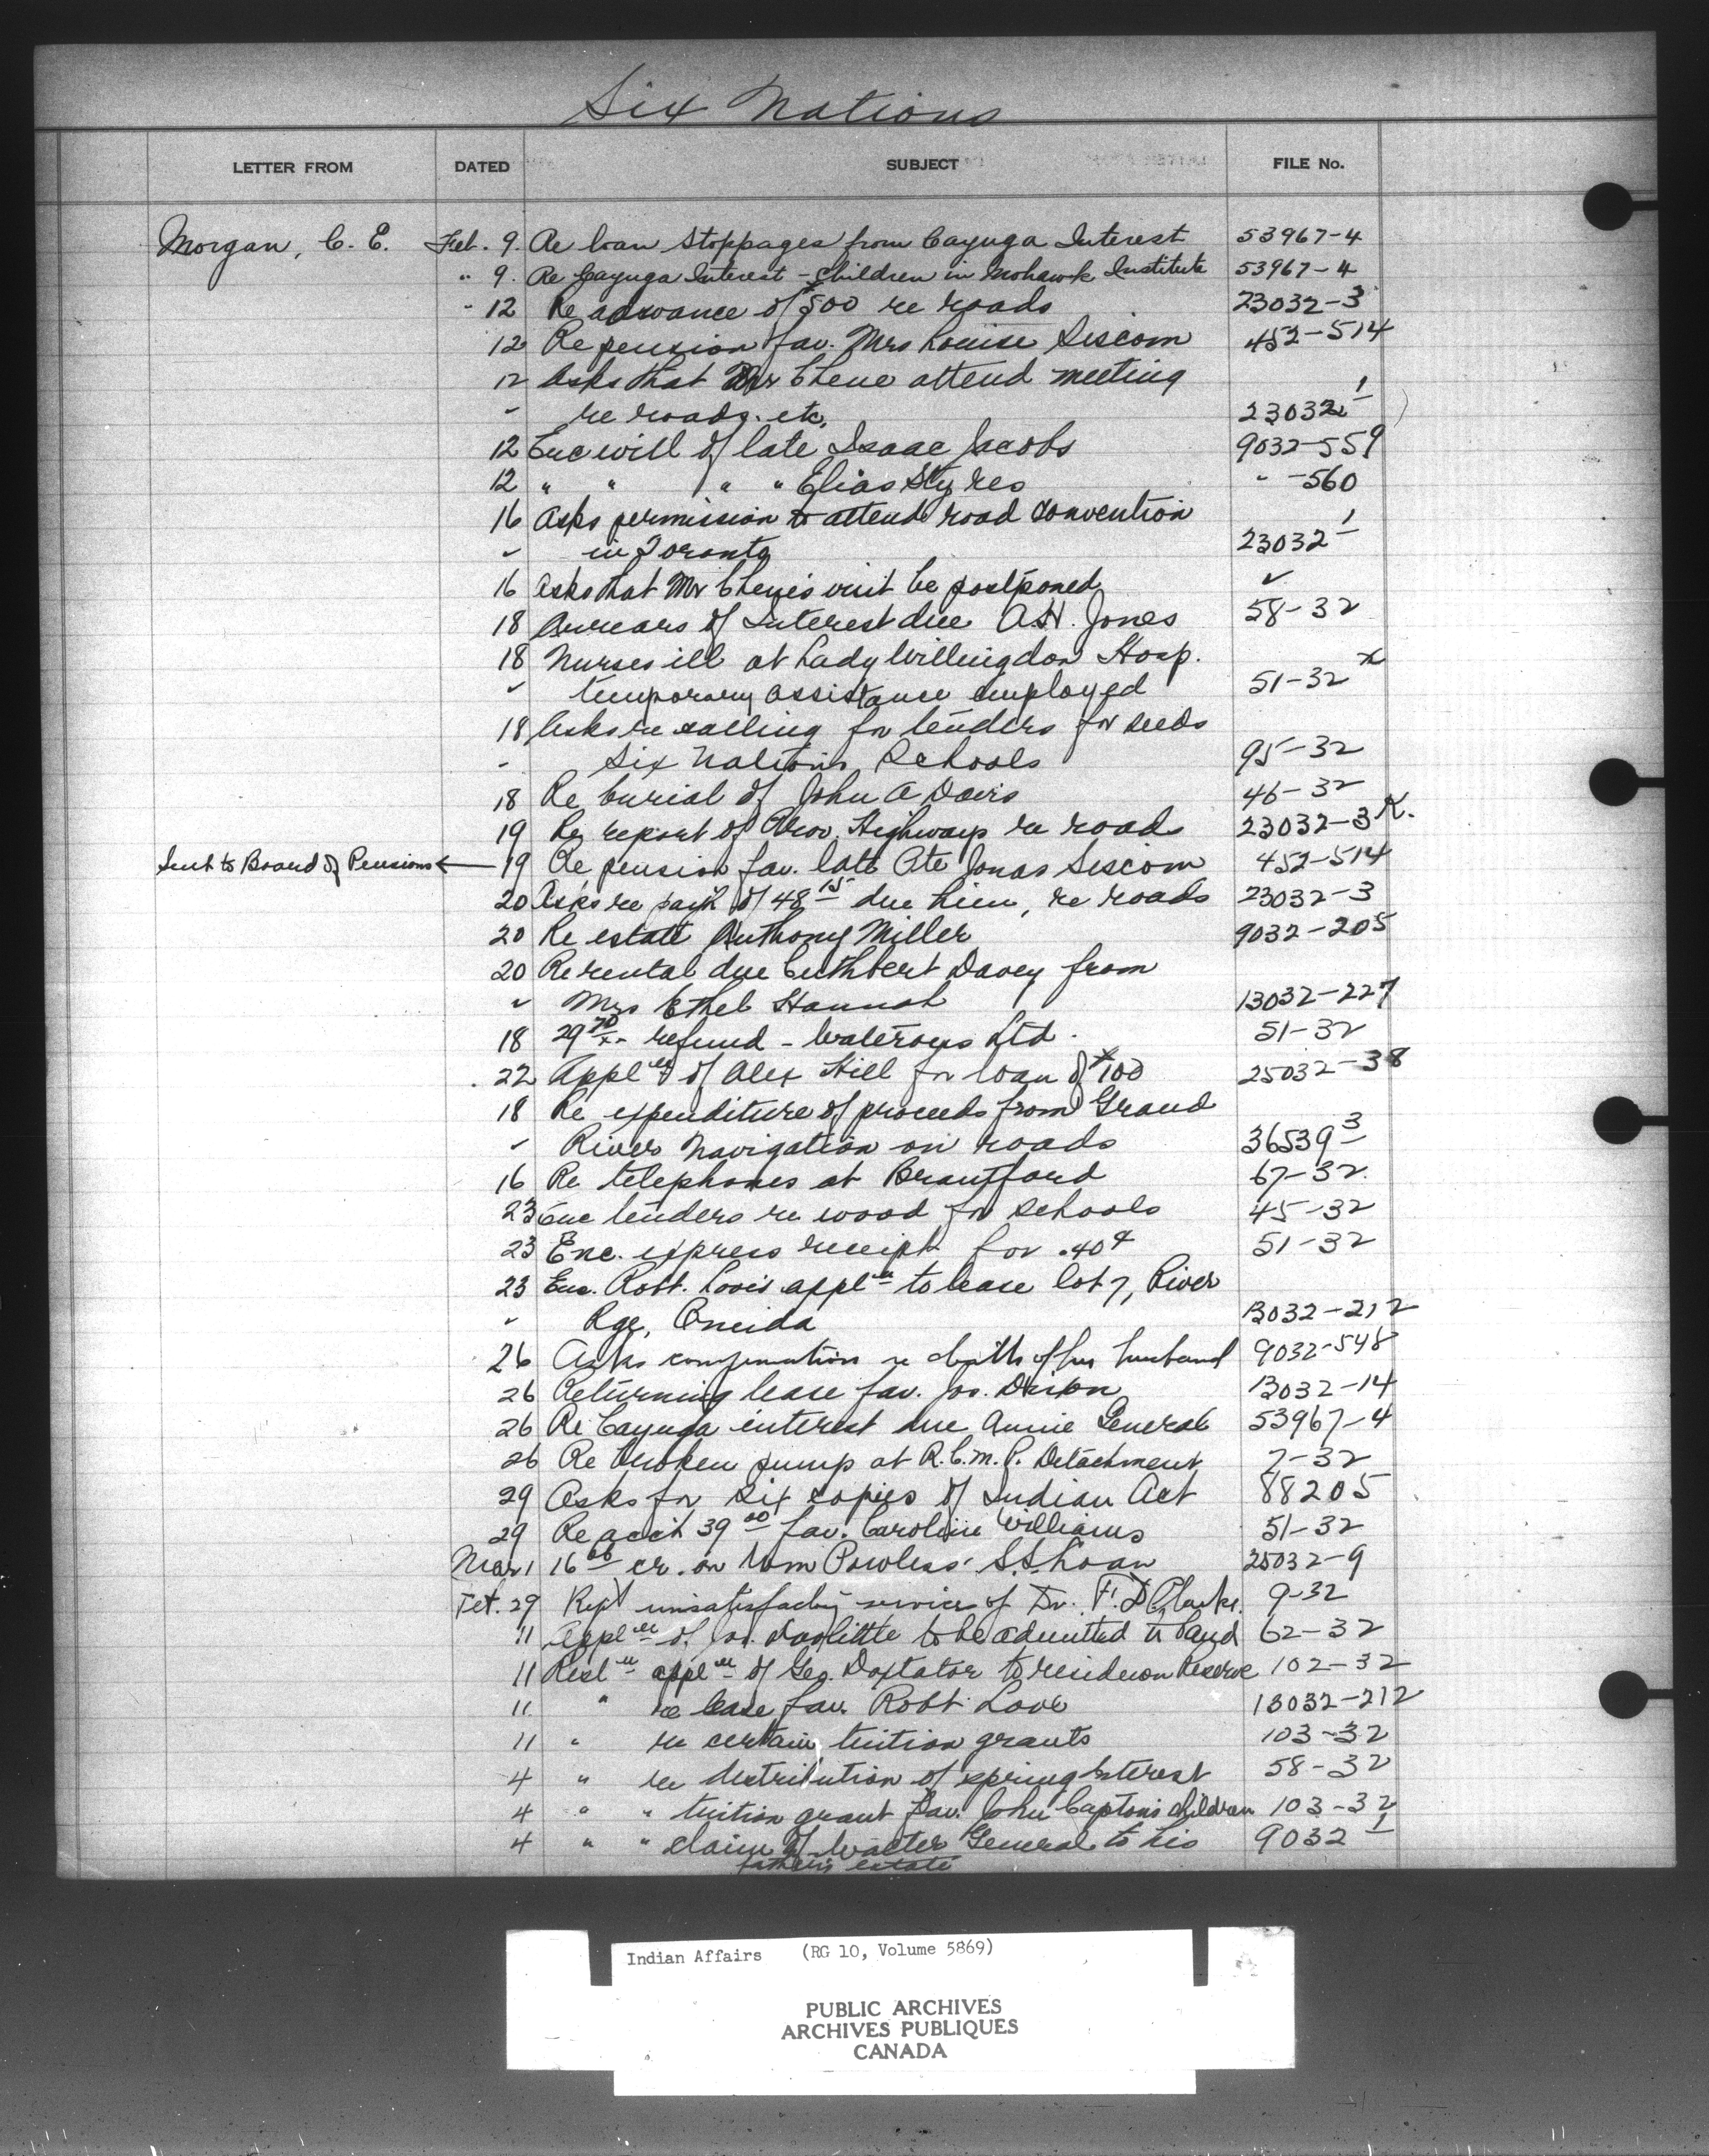 Six Nations
LETTER FROM DATED SUBJECT FILE No.
Morgan, C. E. Feb. 9. Re loan stoppages from Cayuga Interest 53967-4
" 9. Re Cayuga Interest - Children in Mohawk Institute 53967-4
" 12 Re advance of $500 re roads 23032-3
12 Re pension fav. Mrs Louise Siscom 452-514
12 Asks that Mr Chene attend meeting
" re roads. etc. 23032-1
12 Enc will of late Isaac Jacobs 9032-559
12 " " " " Elias Styres " -560
16 Asks permission to attend road convention
" in Toronto 23032-1
16 Asks that Mr Chene's visit be postponed "
18 Arrears of Interest due A.H. Jones 58-32
18 Nurses ill at Lady Willingdon Hosp.
" temporary assistance employed 51-32 x
18 Asks re calling for tenders for seeds
" Six Nations Schools 95-32
18 Re burial of John A Davis 46-32
19 Re report of Prov. Highways re roads 23032-3 K.
Sent to Board of Pensions ← 19 Re pension fav. late Pte Jonas Siscom 452-514
20 Asks re paym't of 48 15 due him, re roads 23032-3
20 Re estate Anthony Miller 9032-205
20 Re rental due Cuthbert Davey from
" Mrs Ethel Hannah 13032-227
18 29 70 refund - Waterous Ltd. 51-32
22 Appl'n of Alex Hill for loan of $100 25032-38
18 Re expenditure of proceeds from Grand
" River Navigation on roads 36539-3
16 Re telephones at Brantford 67-32
23 Enc tenders re wood for schools 45-32
23 Enc. express receipt for .40¢ 51-32
23 Enc. Robt. Love's appl'n to lease lot 7, River
" Rge, Oneida 13032-212
26 Asks compensation re death of her husband 9032-548
26 Returning lease fav. Jos. Dixon 13032-14
26 Re Cayuga interest due Annie General 53967-4
26 Re broken pump at R.C.M.P. Detachment 7-32
29 Asks for six copies of Indian Act 88205
29 Re acc't 39 00 fav. Caroline Williams 51-32
Mar 1 16 66 cr. on Wm Powless' S.S. Loan 25032-9
Feb. 29 Rept unsatisfactory services of Dr. F. D Clarke. 9-32
11 Appl'n of Jos. Doolittle to be admitted to Band 62-32
11 Resl'n appl'n of Geo. Doxtator to reside on Reserve 102-32
11 " re lease fav. Robt. Love 13032-212
11 " re certain tuition grants 103-32
4 " re distribution of spring Interest 58-32
4 " " tuition grant fav. John Capton's children 103-32
4 " " claim of Walter General to his 9032-1
father's estate
Indian Affairs (RG 10, Volume 5869)
PUBLIC ARCHIVES
ARCHIVES PUBLIQUES
CANADA